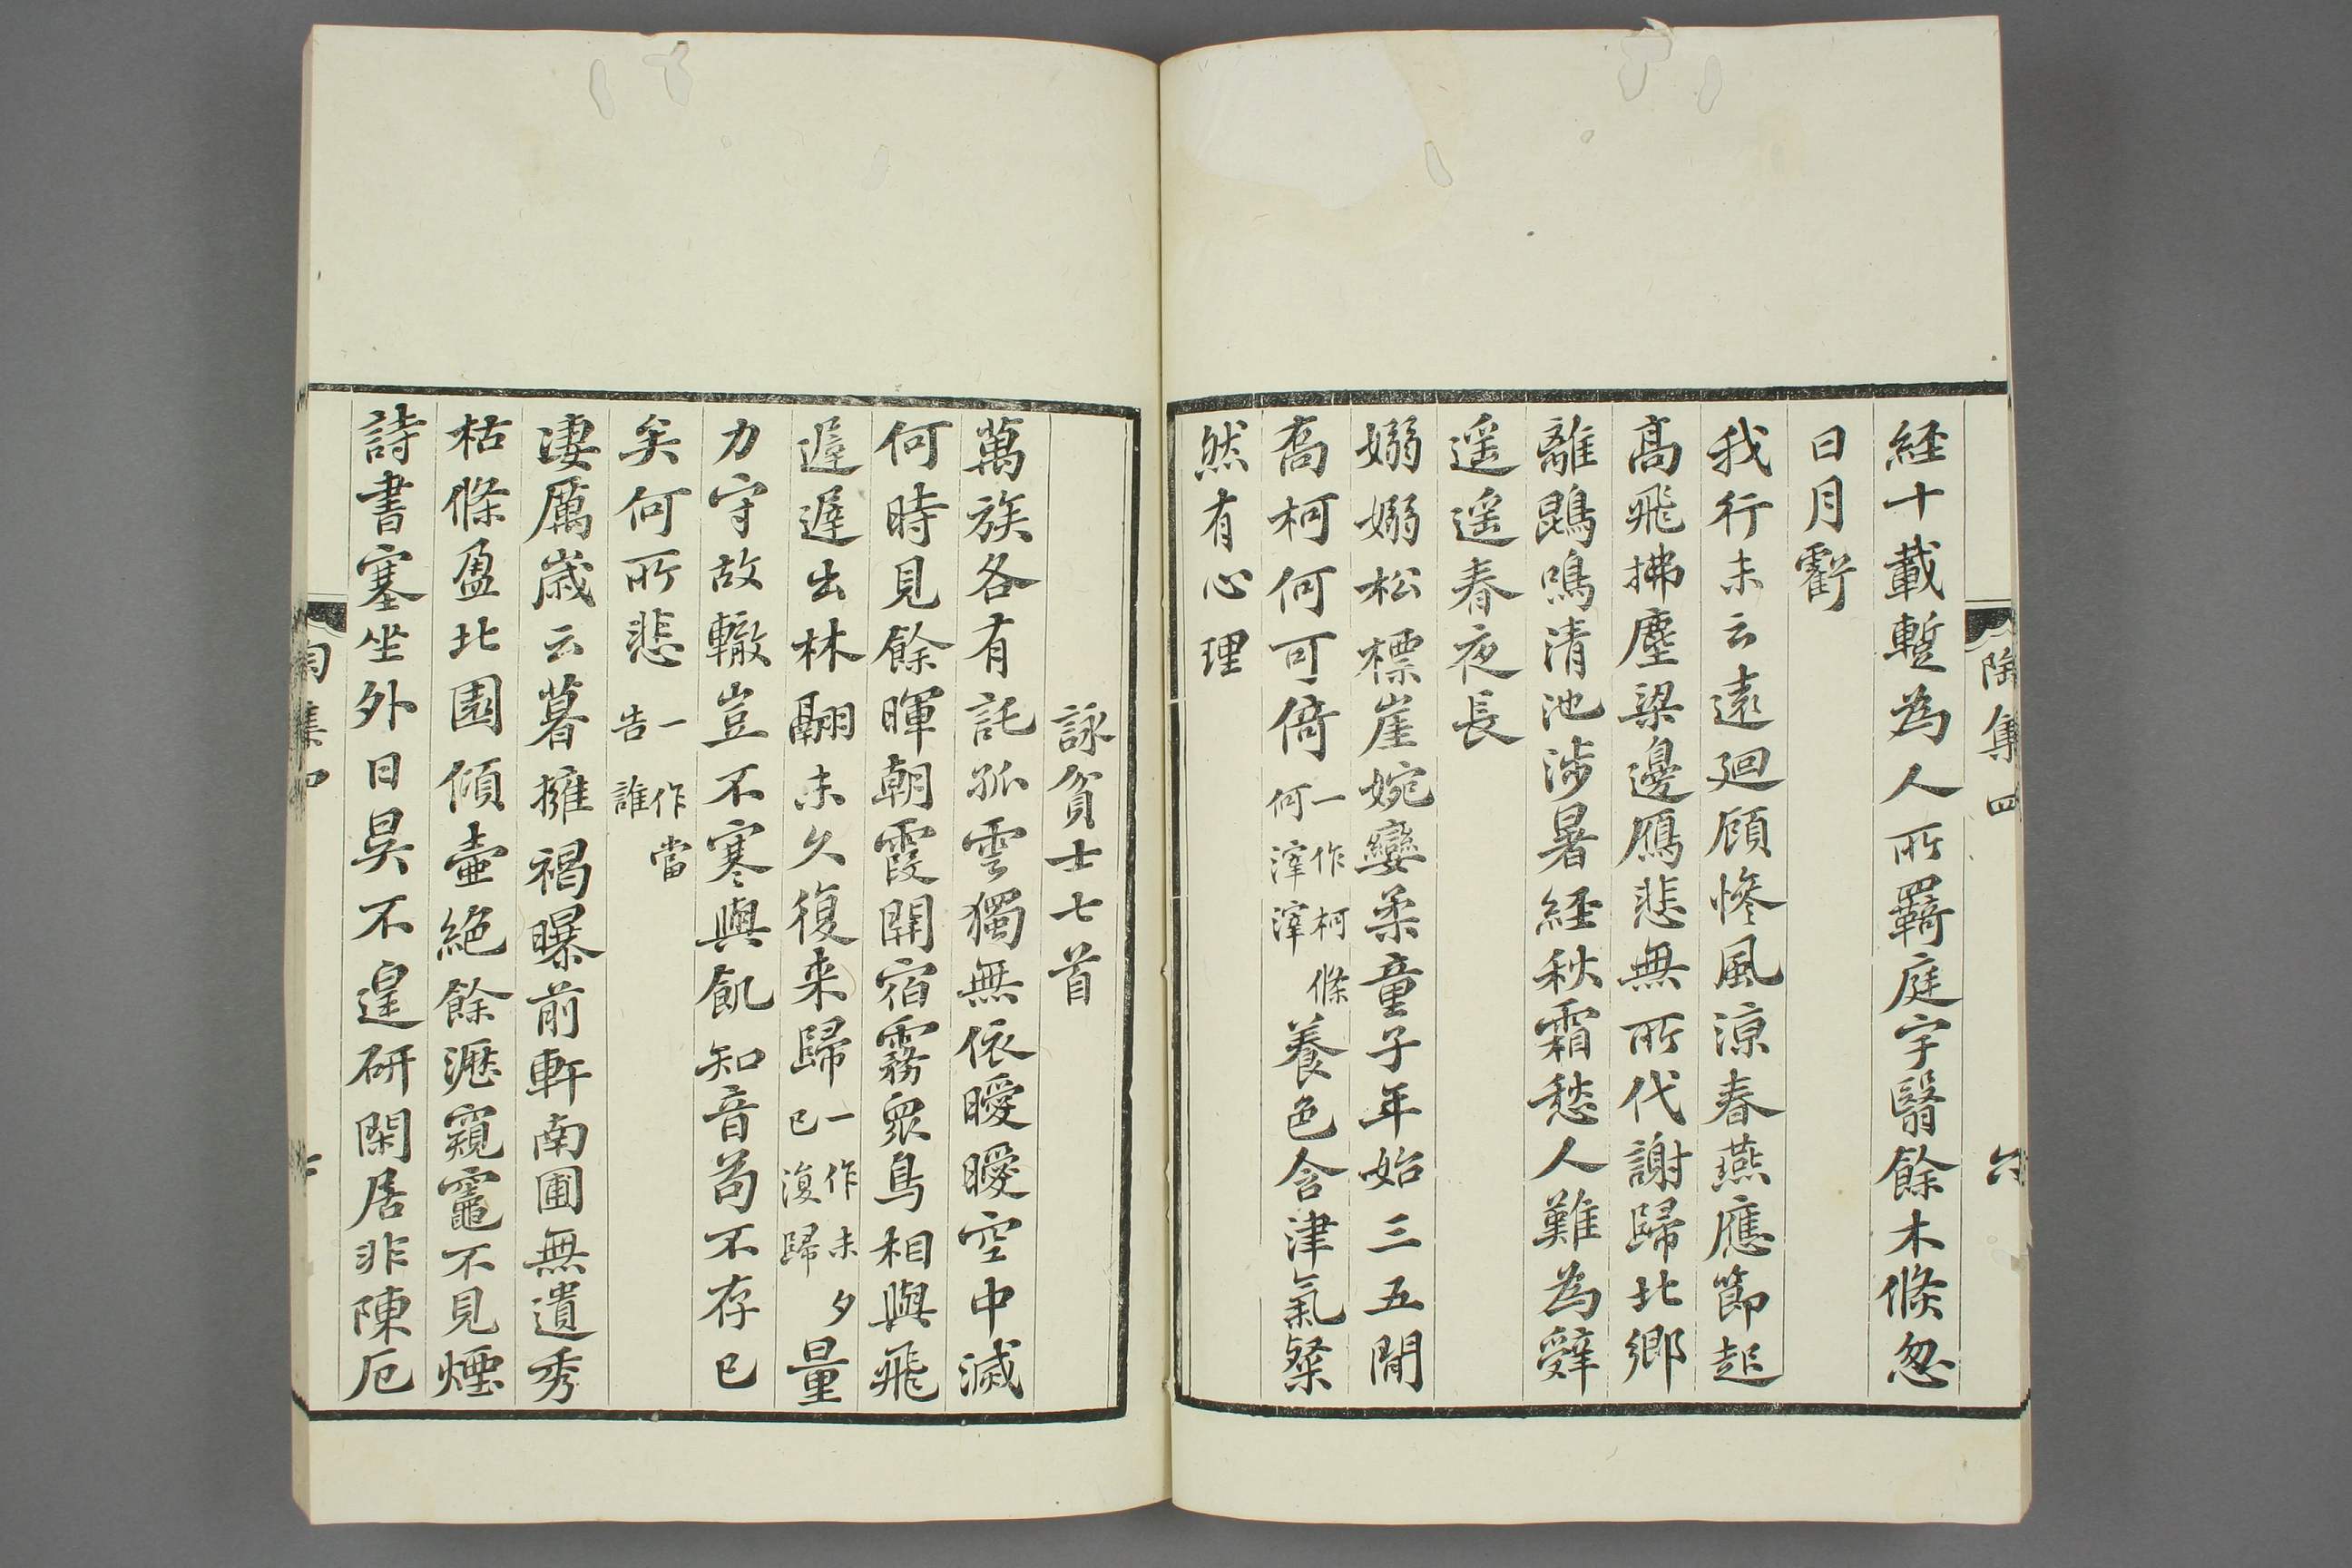 陶集四
六
経十載蹔為人所羈庭宇翳餘木倏忽
日月虧
我行未云遠廻顧慘風涼春燕應節起
高飛拂塵梁邊鴈悲無所代謝歸北鄉
離鵾鳴清池涉暑経秋霜愁人難為辤
遥遥春夜長
嫋嫋松標崖婉孌柔童子年始三五間
喬柯何可倚一作柯條何滓滓養色含津氣粲
然有心理
詠貧士七首
萬族各有託孤雲獨無依曖曖空中滅
何時見餘暉朝霞開宿霧衆鳥相與飛
遲遲出林翮未久復来歸一作未夕已復歸量
力守故轍豈不寒與飢知音苟不存已
矣何所悲一作當告誰
凄厲歳云暮擁褐曝前軒南圃無遺秀
枯條盈北園傾壷絶餘瀝窺竈不見煙
詩書塞坐外日昃不遑研閑居非陳厄